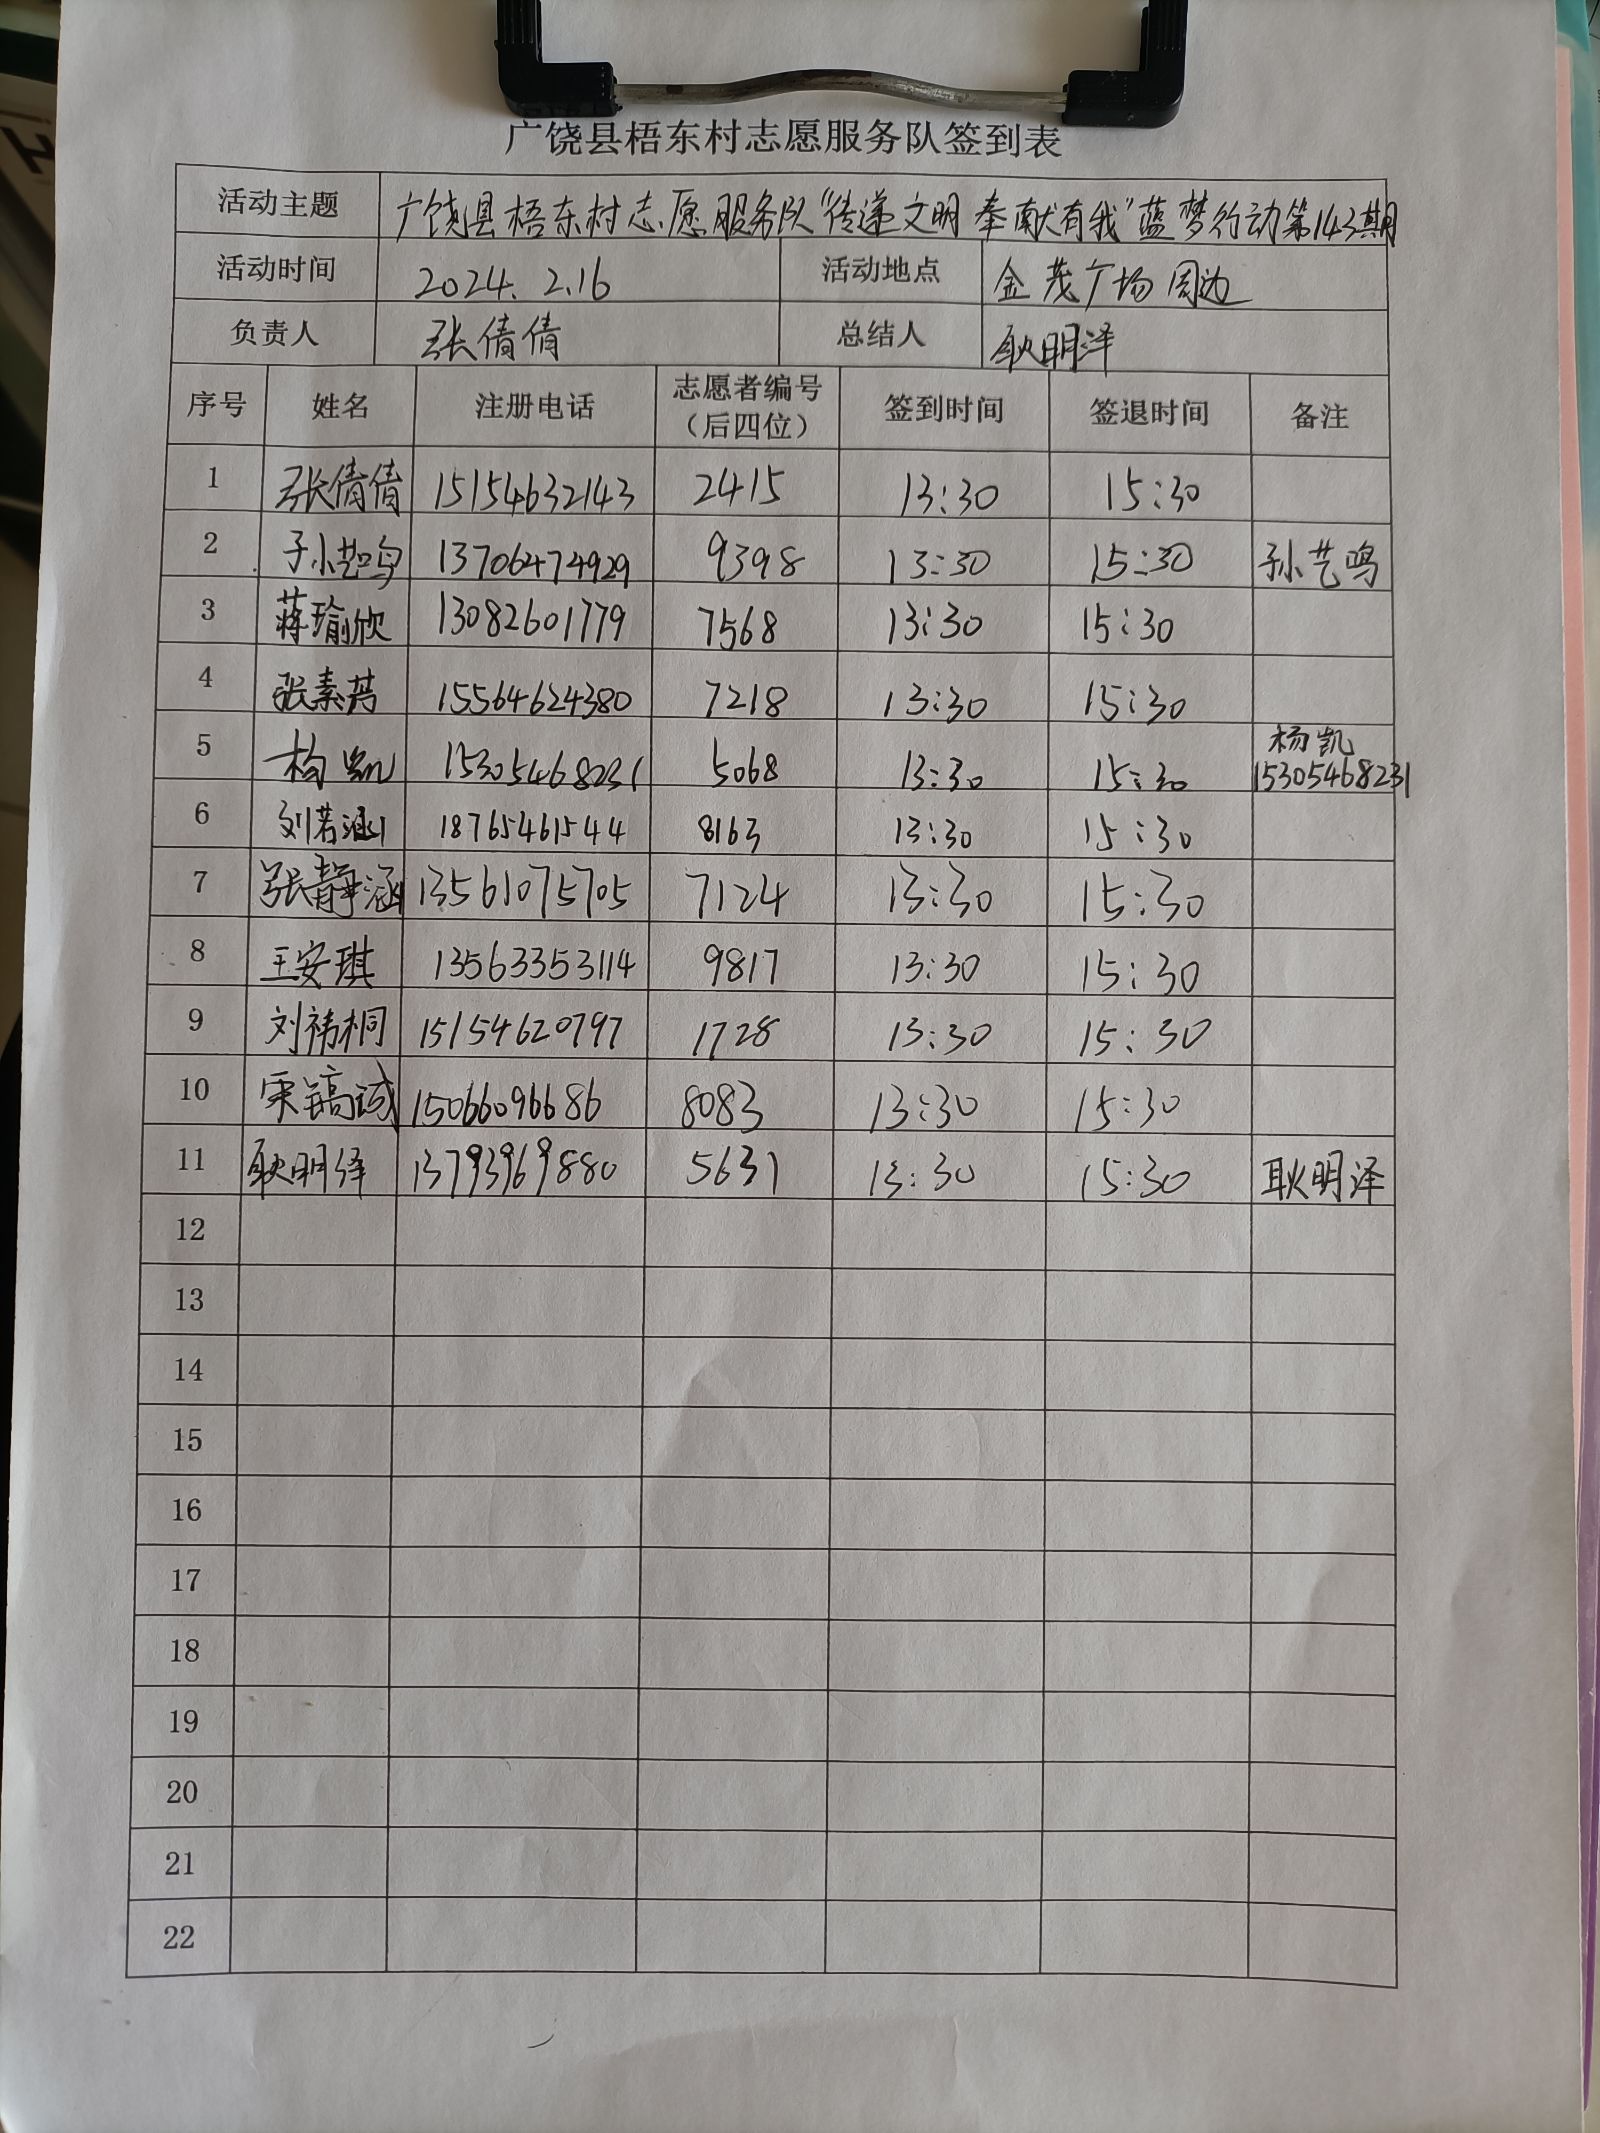 广饶县梧东村志愿服务队签到表
活动主题 广饶县梧东村志愿服务队“传递文明 奉献有我”蓝梦行动第143期
活动时间 2024.2.16 活动地点 金茂广场周边
负责人 张倩倩 总结人 耿明泽
序号 姓名 注册电话 志愿者编号（后四位） 签到时间 签退时间 备注
1 张倩倩 15154632143 2415 13:30 15:30
2 孙艺鸣 13706474929 9398 13:30 15:30 孙艺鸣
3 蒋瑜欣 13082601779 7568 13:30 15:30
4 张素芳 15564624380 7218 13:30 15:30
5 杨凯 15305468231 5068 13:30 15:30 杨凯 15305468231
6 刘若涵 18765461544 8163 13:30 15:30
7 张静涵 13561075705 7124 13:30 15:30
8 王安琪 13563353114 9817 13:30 15:30
9 刘祎桐 15154620797 1728 13:30 15:30
10 宋镐诚 15066096686 8083 13:30 15:30
11 耿明泽 13793969880 5631 13:30 15:30 耿明泽
12
13
14
15
16
17
18
19
20
21
22